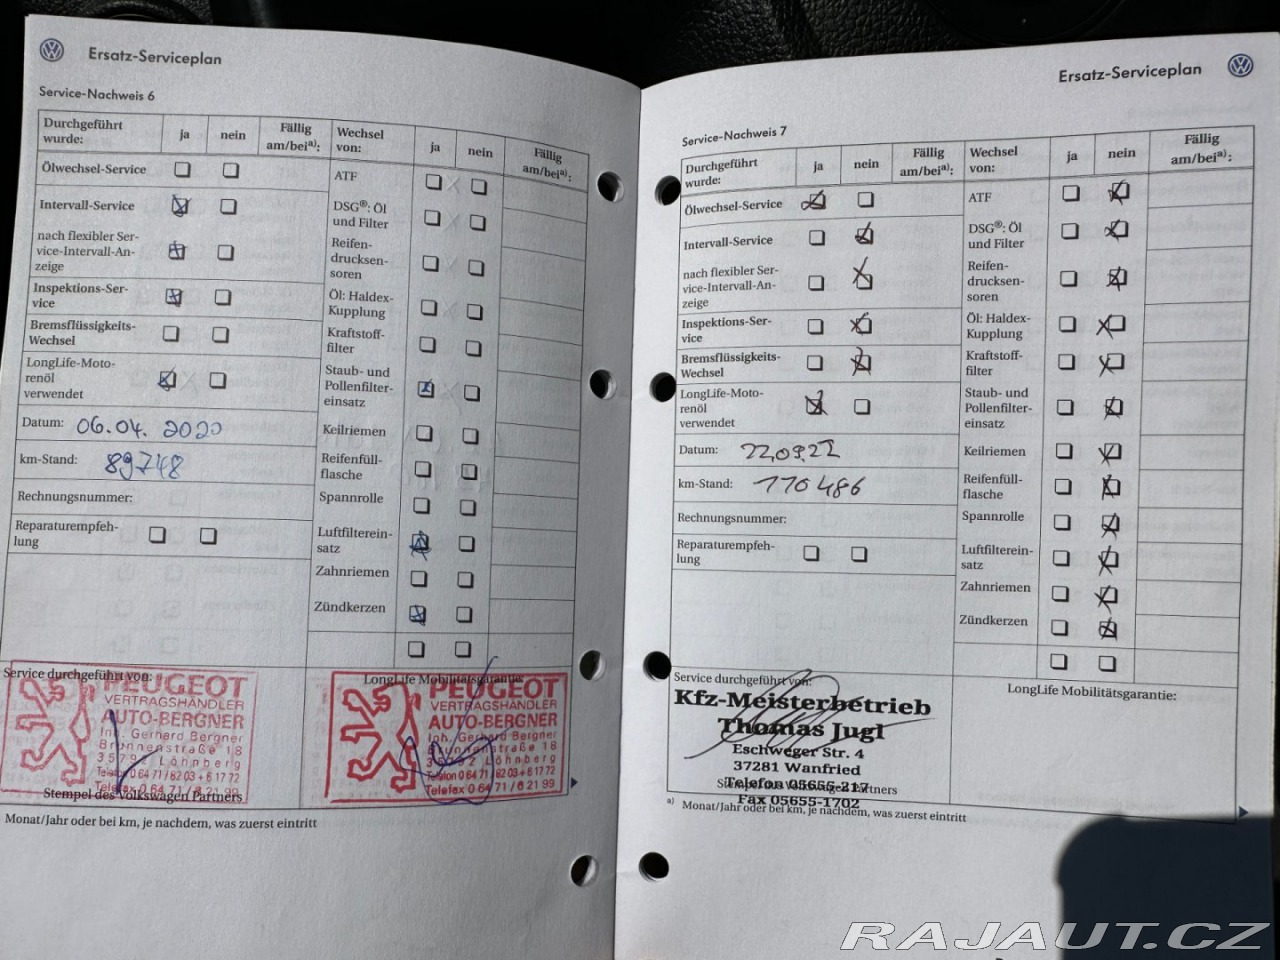 Ersatz-Serviceplan
Service-Nachweis 6
Durchgeführt wurde:
ja
nein
Fällig am/bei a):
Wechsel von:
ja
nein
Fällig am/bei a):
Ölwechsel-Service
Intervall-Service
nach flexibler Ser-
vice-Intervall-An-
zeige
Inspektions-Ser-
vice
Bremsflüssigkeits-
Wechsel
LongLife-Moto-
renöl
verwendet
Datum: 06.04. 2020
km-Stand: 89748
Rechnungsnummer:
Reparaturempfeh-
lung
ATF
DSG®: Öl
und Filter
Reifen-
drucksen-
soren
Öl: Haldex-
Kupplung
Kraftstoff-
filter
Staub- und
Pollenfilter-
einsatz
Keilriemen
Reifenfüll-
flasche
Spannrolle
Luftfilterein-
satz
Zahnriemen
Zündkerzen
Service durchgeführt von:
PEUGEOT
VERTRAGSHÄNDLER
AUTO-BERGNER
Inh. Gerhard Bergner
Brunnenstraße 18
35792 Löhnberg
Telefon 0 64 71 / 82 03 + 6 17 72
Telefax 0 64 71 / 6 21 99
Stempel des Volkswagen Partners
LongLife Mobilitätsgarantie:
PEUGEOT
VERTRAGSHÄNDLER
AUTO-BERGNER
Inh. Gerhard Bergner
Brunnenstraße 18
35792 Löhnberg
Telefon 0 64 71 / 82 03 + 6 17 72
Telefax 0 64 71 / 6 21 99
Monat/Jahr oder bei km, je nachdem, was zuerst eintritt
Ersatz-Serviceplan
Service-Nachweis 7
Durchgeführt
wurde:
ja
nein
Fällig
am/bei a):
Wechsel
von:
ja
nein
Fällig
am/bei a):
Ölwechsel-Service
Intervall-Service
nach flexibler Ser-
vice-Intervall-An-
zeige
Inspektions-Ser-
vice
Bremsflüssigkeits-
Wechsel
LongLife-Moto-
renöl
verwendet
Datum: 220922
km-Stand: 110486
Rechnungsnummer:
Reparaturempfeh-
lung
ATF
DSG®: Öl
und Filter
Reifen-
drucksen-
soren
Öl: Haldex-
Kupplung
Kraftstoff-
filter
Staub- und
Pollenfilter-
einsatz
Keilriemen
Reifenfüll-
flasche
Spannrolle
Luftfilterein-
satz
Zahnriemen
Zündkerzen
Service durchgeführt von:
Kfz-Meisterbetrieb
Thomas Jugl
Eschweger Str. 4
37281 Wanfried
Telefon 05655-217
Stempel des Volkswagen Partners
Fax 05655-1702
LongLife Mobilitätsgarantie:
a) Monat/Jahr oder bei km, je nachdem, was zuerst eintritt
RAJAUT.CZ